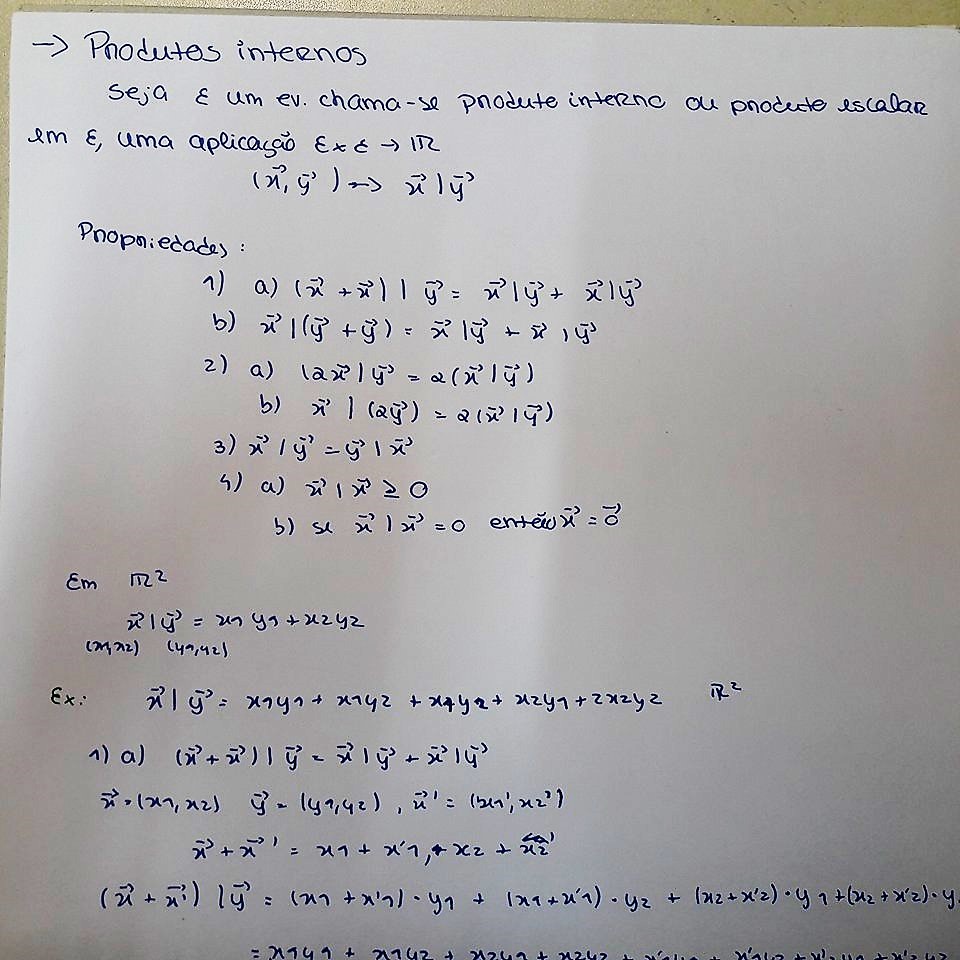 → Produtos internos
Seja E um ev. chama-se produto interno ou produto escalar
em E, uma aplicação E x E → ℝ
(x⃗, y⃗) → x⃗ | y⃗
Propriedades:
1) a) (x⃗ + x⃗) | y⃗ = x⃗ | y⃗ + x⃗ | y⃗
b) x⃗ | (y⃗ + y⃗) = x⃗ | y⃗ + x⃗ | y⃗
2) a) (2x⃗ | y⃗ = 2(x⃗ | y⃗)
b) x⃗ | (2y⃗) = 2(x⃗ | y⃗)
3) x⃗ | y⃗ = y⃗ | x⃗
4) a) x⃗ | x⃗ ≥ 0
b) se x⃗ | x⃗ = 0 então x⃗ = 0⃗
Em ℝ²
x⃗ | y⃗ = x1 y1 + x2 y2
(x1, x2) (y1, y2)
Ex: x⃗ | y⃗ = x1y1 + x1y2 + x2y1 + 2x2y2 ℝ²
1) a) (x⃗ + x⃗) | y⃗ = x⃗ | y⃗ + x⃗ | y⃗
x⃗ = (x1, x2) y⃗ = (y1, y2), x⃗' = (x1', x2')
x⃗ + x⃗' = x1 + x'1, x2 + x2'
(x⃗ + x⃗') | y⃗ = (x1 + x'1) · y1 + (x1 + x'1) · y2 + (x2 + x'2) · y1 + (x2 + x'2) · y
= x1y1 + x1y2 + x2y1 + x2y2 +